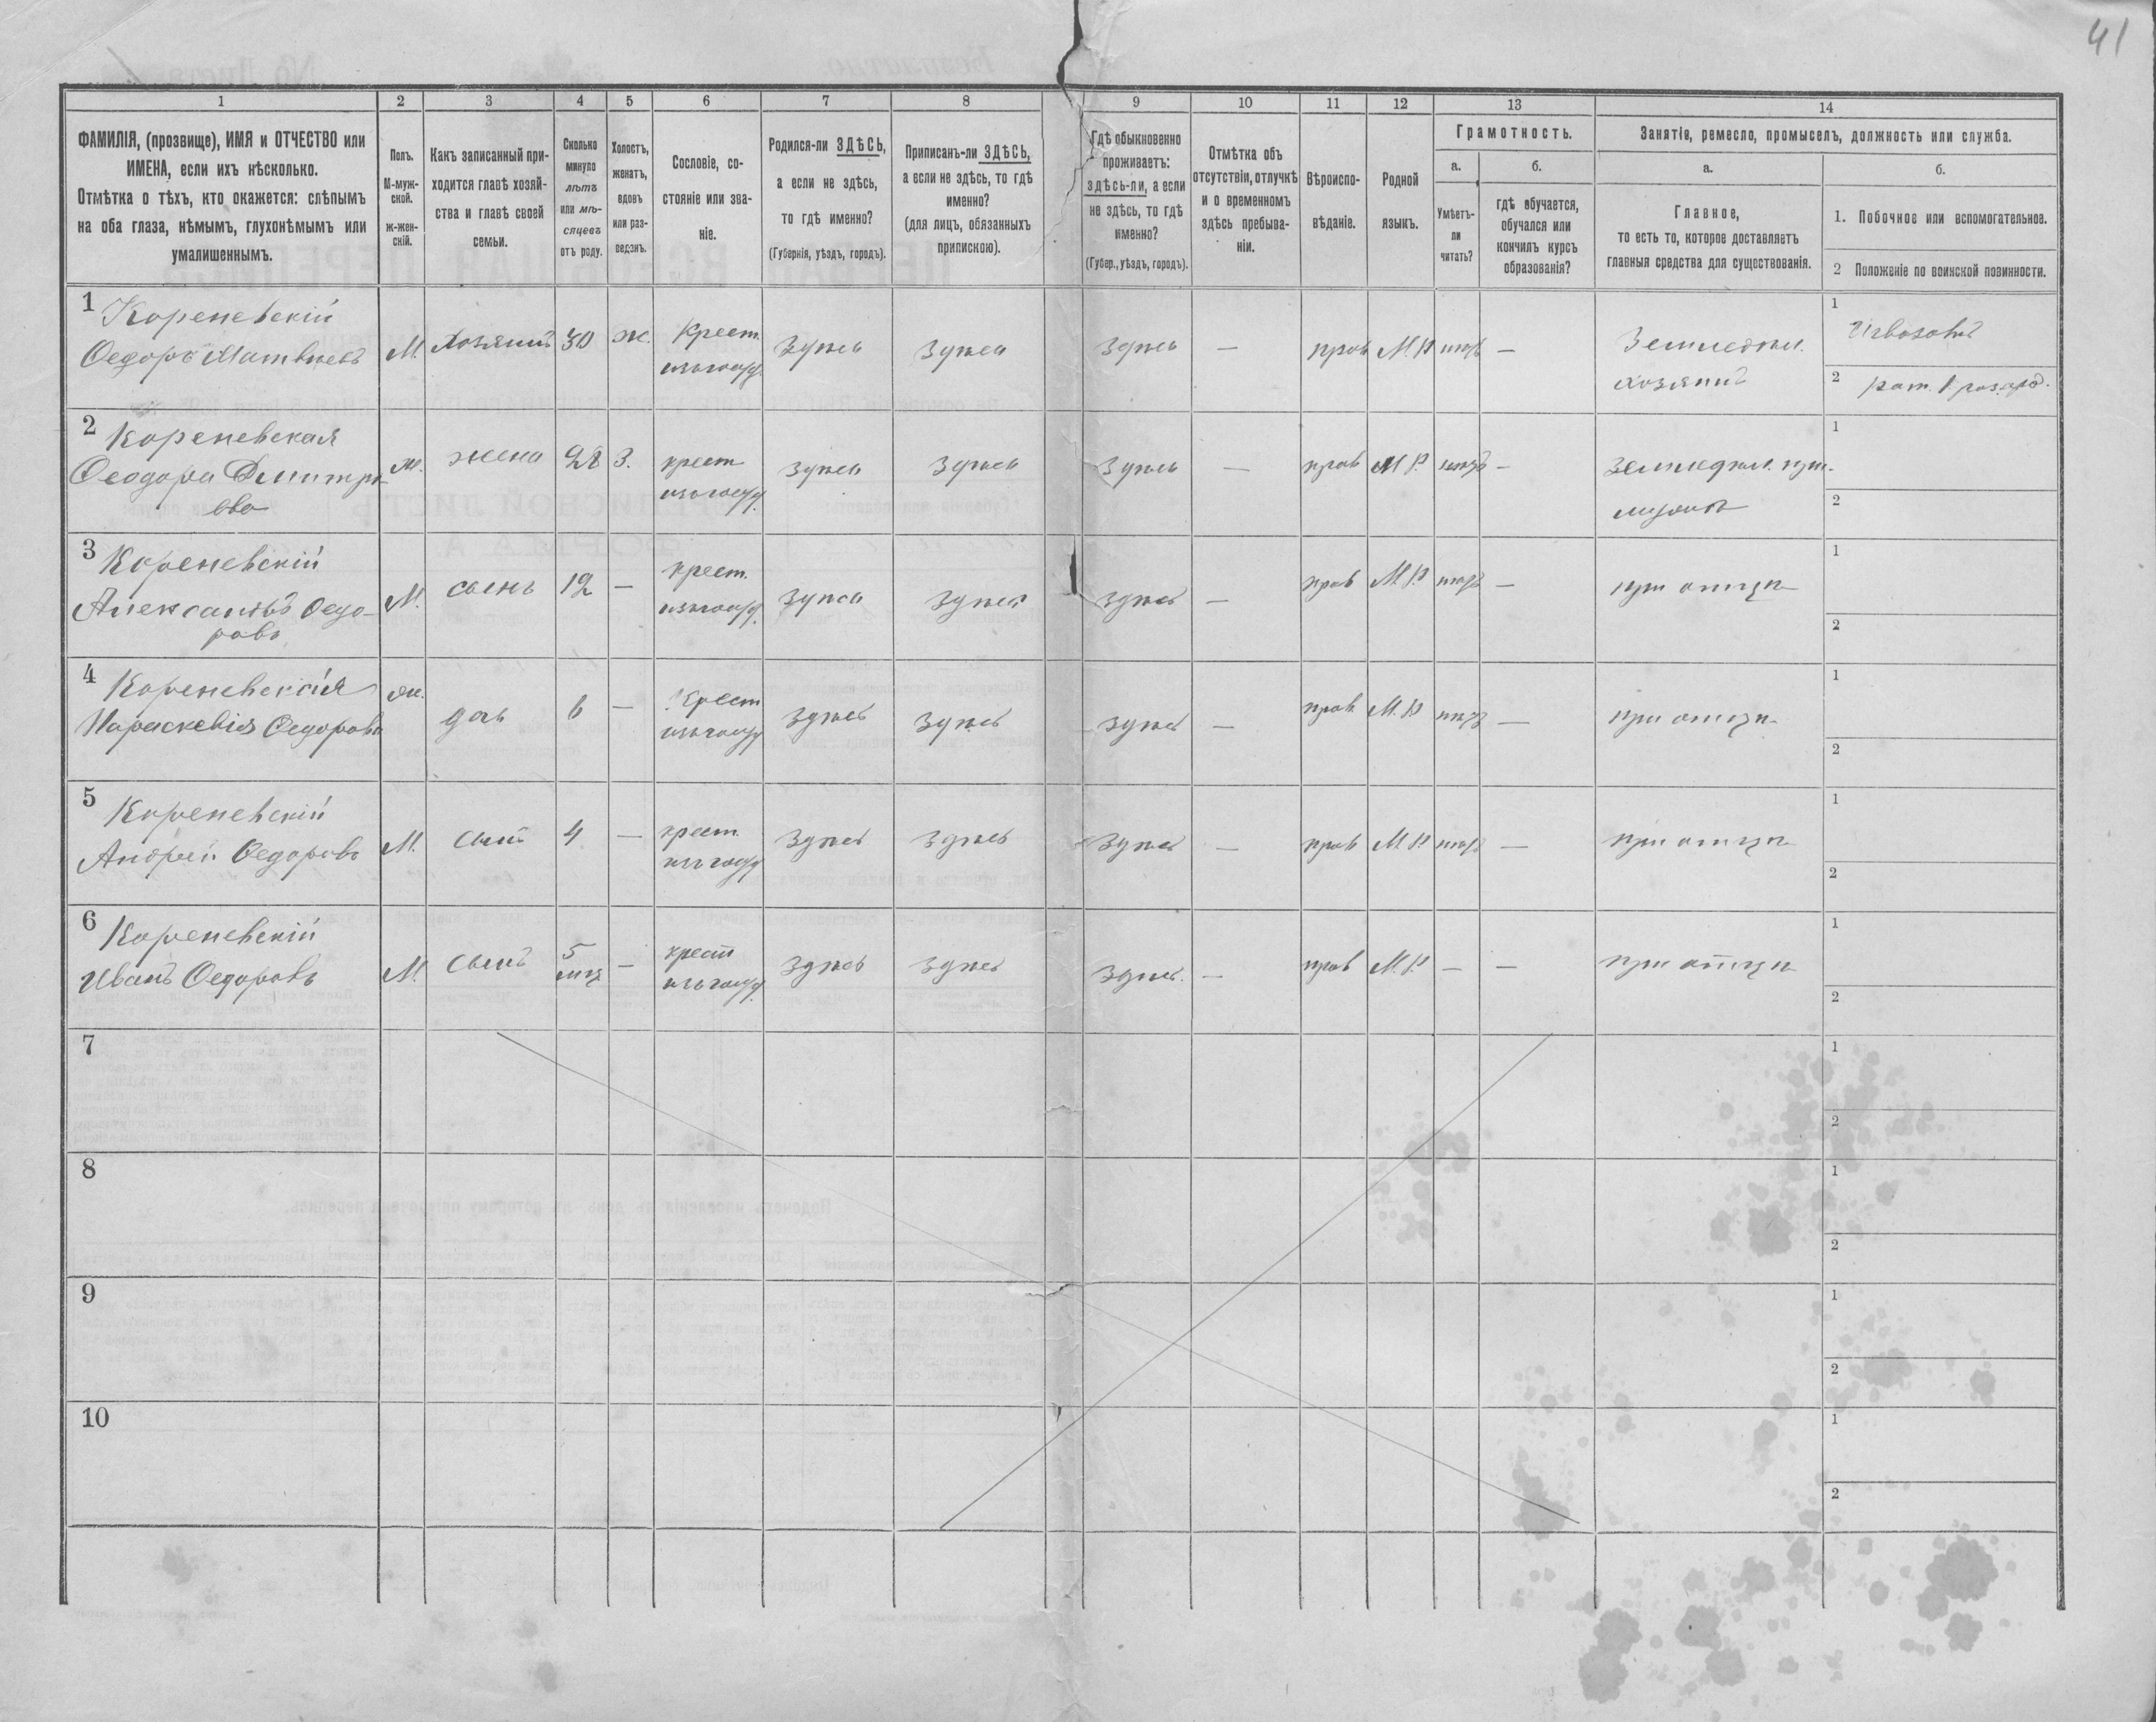 41
1 2 3 4 5 6 7 8 9 10 11 12 13 14
ФАМИЛІЯ, (прозвище), ИМЯ и ОТЧЕСТВО или
ИМЕНА, если ихъ нѣсколько.
Отмѣтка о тѣхъ, кто окажется: слѣпымъ
на оба глаза, нѣмымъ, глухонѣмымъ или
умалишеннымъ.
Полъ.
М-муж-
ской.
ж-жен-
скій.
Какъ записанный при-
ходится главѣ хозяй-
ства и главѣ своей
семьи.
Сколько
минуло
лѣтъ
или мѣ-
сяцевъ
отъ роду.
Холостъ,
женатъ,
вдовъ
или раз-
веденъ.
Сословіе, со-
стояніе или зва-
ніе.
Родился-ли ЗДѢСЬ,
а если не здѣсь,
то гдѣ именно?
(Губернія, уѣздъ, городъ).
Приписанъ-ли ЗДѢСЬ,
а если не здѣсь, то гдѣ
именно?
(для лицъ, обязанныхъ
припискою).
Гдѣ обыкновенно
проживаетъ:
здѣсь-ли, а если
не здѣсь, то гдѣ
именно?
(Губер., уѣздъ, городъ).
Отмѣтка объ
отсутствіи, отлучкѣ
и о временномъ
здѣсь пребыва-
ніи.
Вѣроиспо-
вѣданіе.
Родной
языкъ.
Грамотность.
а.
Умѣетъ-
ли
читать?
б.
гдѣ обучается,
обучался или
кончилъ курсъ
образованія?
Занятіе, ремесло, промыселъ, должность или служба.
а.
Главное,
то есть то, которое доставляетъ
главныя средства для существованія.
б.
1. Побочное или вспомогательное.
2 Положеніе по воинской повинности.
1 Кореневскій
Ѳедоръ Матвѣевъ М. Хозяинъ 30 ж. Крест. Здѣсь Здѣсь Здѣсь — прав М.Р нѣтъ — Земледѣл.
хозяинъ
1 Извозъ
2 рат. 1 разряд.
2 Кореневская
Ѳеодора Дмитрі-
ева ж. жена 28 З. крест здѣсь здѣсь здѣсь — прав М.Р. нѣтъ — земледѣл. при
мужѣ
1
2
3 Кореневскій
Александръ Ѳедо-
ровъ М. сынъ 12 — крест. здѣсь здѣсь здѣсь — прав М.Р. нѣтъ — при отцѣ
1
2
4 Кореневская
Параскевія Ѳедорова ж. дочь 6 — Крест здѣсь здѣсь здѣсь — прав М.Р нѣтъ — при отцѣ
1
2
5 Кореневскій
Андрей Ѳедоровъ М. сынъ 4 — крест. здѣсь здѣсь здѣсь — прав М.Р нѣтъ — при отцѣ
1
2
6 Кореневскій
Иванъ Ѳедоровъ М. сынъ 5
мѣц — крест здѣсь здѣсь здѣсь. — прав М.Р. — — при отцѣ
1
2
7
1
2
8
1
2
9
1
2
10
1
2